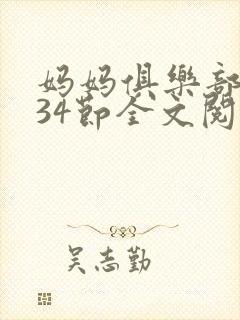 妈妈俱樂部
34節全文閱
吴志勤